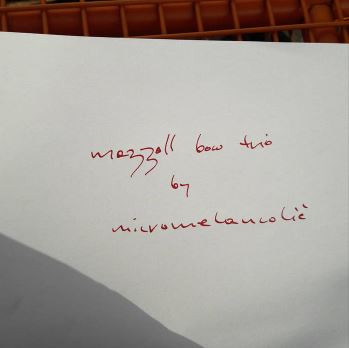 mazzoll bow trio
by
micromelancolié